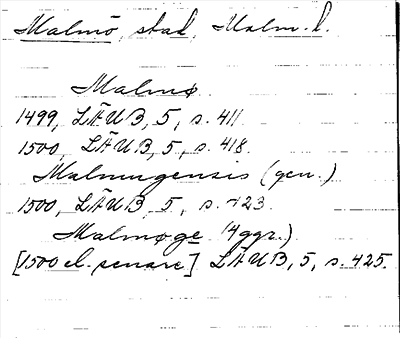 Malmö, stad, Malm. l.
Malmø
1499, LÄUB, 5, s. 411.
1500, LÄUB, 5, s. 418.
Malmugensis (gen.)
1500, LÄUB, 5, s. 423
Malmøge (4 ggr.)
[1500 el. senare] LÄUB, 5, s. 425.